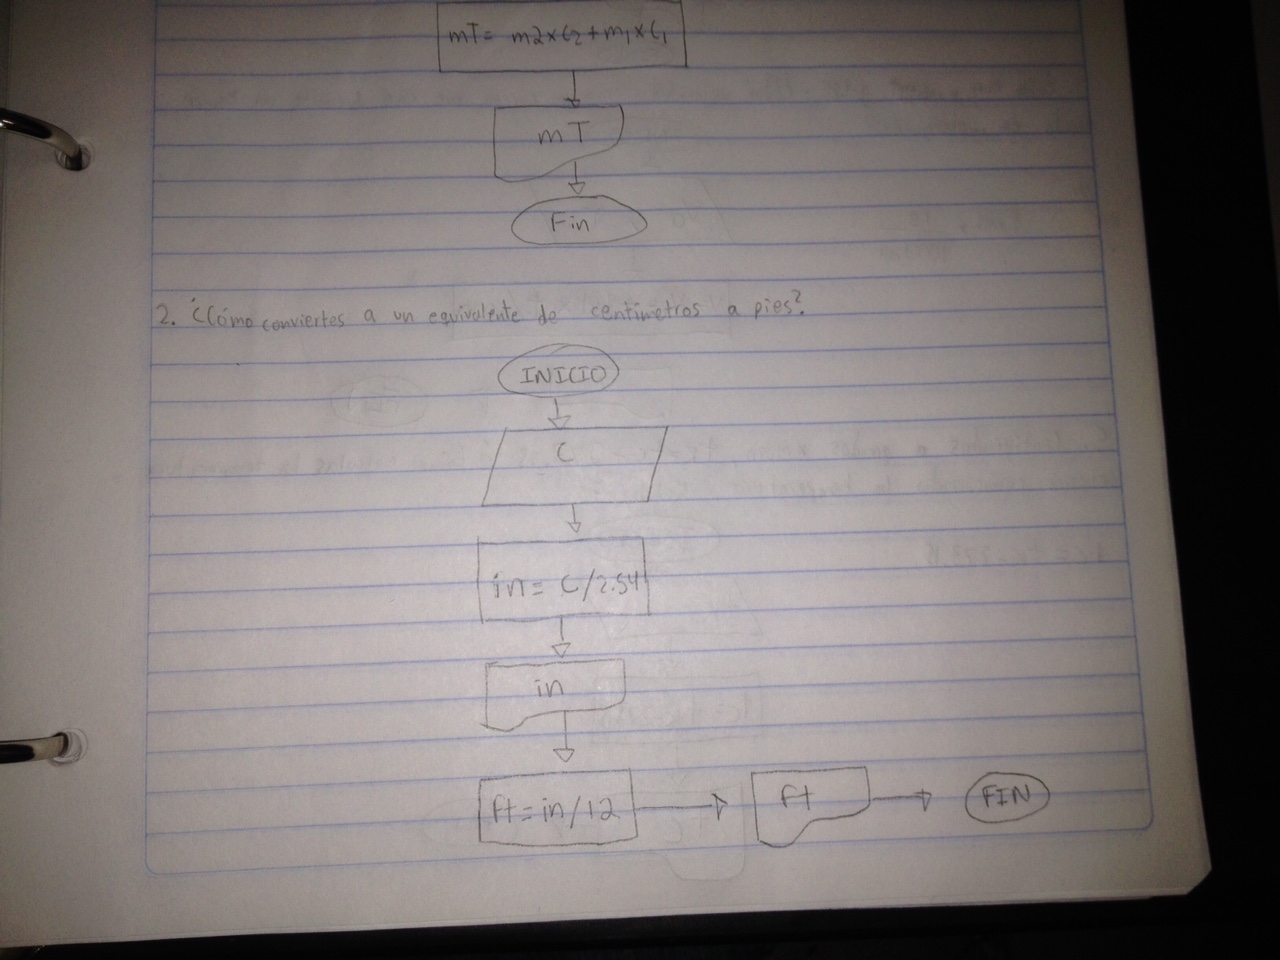 mT= m2xC2+m1xC1
mT
Fin
2. ¿Cómo conviertes a un equivalente de centímetros a pies?
INICIO
C
in= C/2.54
in
ft=in/12
ft
FIN